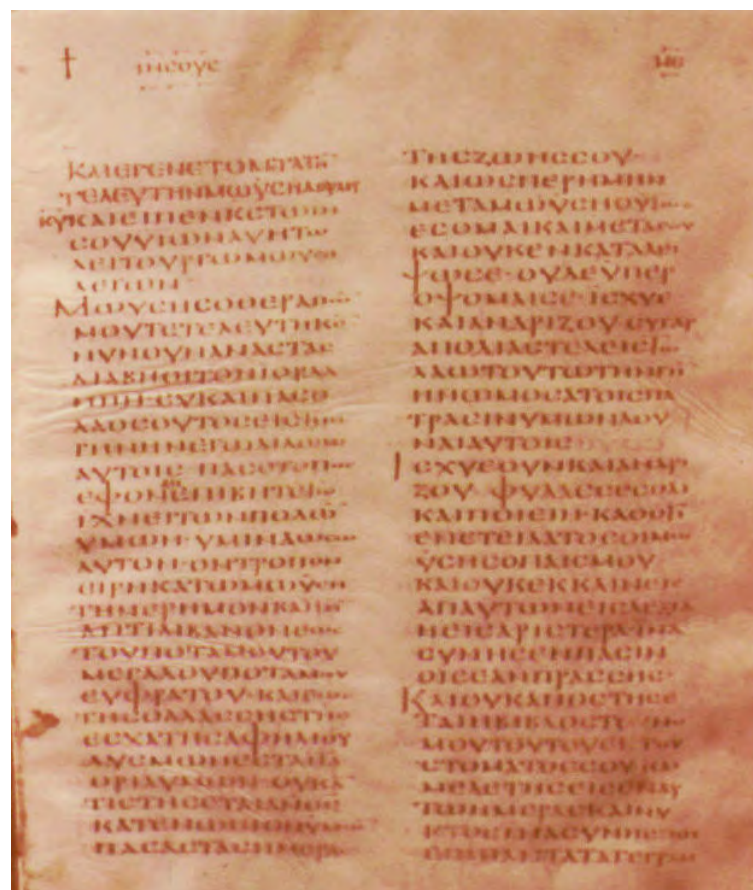 † ΙΗϹΟΥϹ
ΚΑΙΕΓΕΝΕΤΟΜΕΤΑΤΗ̅
ΤΕΛΕΥΤΗΝΜΩΥϹΗ
ΚΥ̅ΚΑΙΕΙΠΕΝΚϹΤΩ
ϹΟΥΥΙΩΝΑΥΗΤΩ
ΛΕΙΤΟΥΡΓΩΜΩΥϹΗ
ΛΕΓΩΝ
ΜΩΥϹΗϹΟΘΕΡΑΠΩ
ΜΟΥΤΕΤΕΛΕΥΤΗΚΕ
ΝΥΝΟΥΝΑΝΑϹΤΑϹ
ΔΙΑΒΗΘΙΤΟΝΙΟΡΔΑ
ΝΗΝϹΥΚΑΙΠΑϹΟ
ΛΑΟϹΟΥΤΟϹΕΙϹΤΗ
ΓΗΝΗΝΕΓΩΔΙΔΩΜΙ
ΑΥΤΟΙϹ ΠΑϹΟΤΟΠ
ΕΦΟΝΕΠΙΒΗΤΕΤΩ
ΙΧΝΕΙΤΩΝΠΟΔΩ
ΥΜΩΝ·ΥΜΙΝΔΩϹΩ
ΑΥΤΟΝ·ΟΝΤΡΟΠΟΝ
ΕΙΡΗΚΑΤΩΜΩΥϹΗ
ΤΗΝΕΡΗΜΟΝΚΑΙΤΟ
ΑΝΤΙΛΙΒΑΝΟΝΕΩϹ
ΤΟΥΠΟΤΑΜΟΥΤΟΥ
ΜΕΓΑΛΟΥΠΟΤΑΜΟΥ
ΕΥΦΡΑΤΟΥ·ΚΑΙΕΩϹ
ΤΗϹΘΑΛΑϹϹΗϹΤΗϹ
ΕϹΧΑΤΗϹΑΦΗΛΙΟΥ
ΔΥϹΜΩΝΕϹΤΑΙΤΑ
ΟΡΙΑΥΜΩΝ·ΟΥΚΑ
ΤΙϹΤΗϹΕΤΑΙΑΝΟϹ
ΚΑΤΕΝΩΠΙΟΝΥΜΩ
ΠΑϹΑϹΤΑϹΗΜΕΡΑϹ
ΤΗϹΖΩΗϹϹΟΥ·
ΚΑΙΩϹΠΕΡΗΜΗΝ
ΜΕΤΑΜΩΥϹΗΟΥΤΩϹ
ΕϹΟΜΑΙΚΑΙΜΕΤΑϹΟΥ
ΚΑΙΟΥΚΕΝΚΑΤΑΛΕΙ
ΨΩϹΕ·ΟΥΔΕΥΠΕΡ
ΟΨΟΜΑΙϹΕ·ΙϹΧΥΕ
ΚΑΙΑΝΔΡΙΖΟΥ·ϹΥΓΑΡ
ΑΠΟΔΙΑϹΤΕΛΕΙϹΤΩ
ΛΑΩΤΟΥΤΩΤΗΝΓΗ
ΗΝΩΜΟϹΑΤΟΙϹΠΑ
ΤΡΑϹΙΝΥΜΩΝΔΟΥ
ΝΑΙΑΥΤΟΙϹ
ΙϹΧΥΕΟΥΝΚΑΙΑΝΔΡΙ
ΖΟΥ·ΦΥΛΑϹϹΕϹΘΑΙ
ΚΑΙΠΟΙΕΙΝ·ΚΑΘΟΤΙ
ΕΝΕΤΕΙΛΑΤΟϹΟΙΜΩ
ΥϹΗϹΟΠΑΙϹΜΟΥ
ΚΑΙΟΥΚΕΚΚΛΙΝΕΙϹ
ΑΠΑΥΤΩΝΕΙϹΔΕΞΙΑ
ΗΕΙϹΑΡΙϹΤΕΡΑΙΝΑ
ϹΥΝΗϹΕΝΠΑϹΙΝ
ΟΙϹΕΑΝΠΡΑϹϹΗϹ·
ΚΑΙΟΥΚΑΠΟϹΤΗϹΕ
ΤΑΙΗΒΙΒΛΟϹΤΟΥΝΟ
ΜΟΥΤΟΥΤΟΥΕΚΤΟΥ
ϹΤΟΜΑΤΟϹϹΟΥΚΑΙ
ΜΕΛΕΤΗϹΕΙϹΕΝΑΥ
ΤΩΗΜΕΡΑϹΚΑΙΝΥ
ΚΤΟϹΙΝΑϹΥΝΗϹ